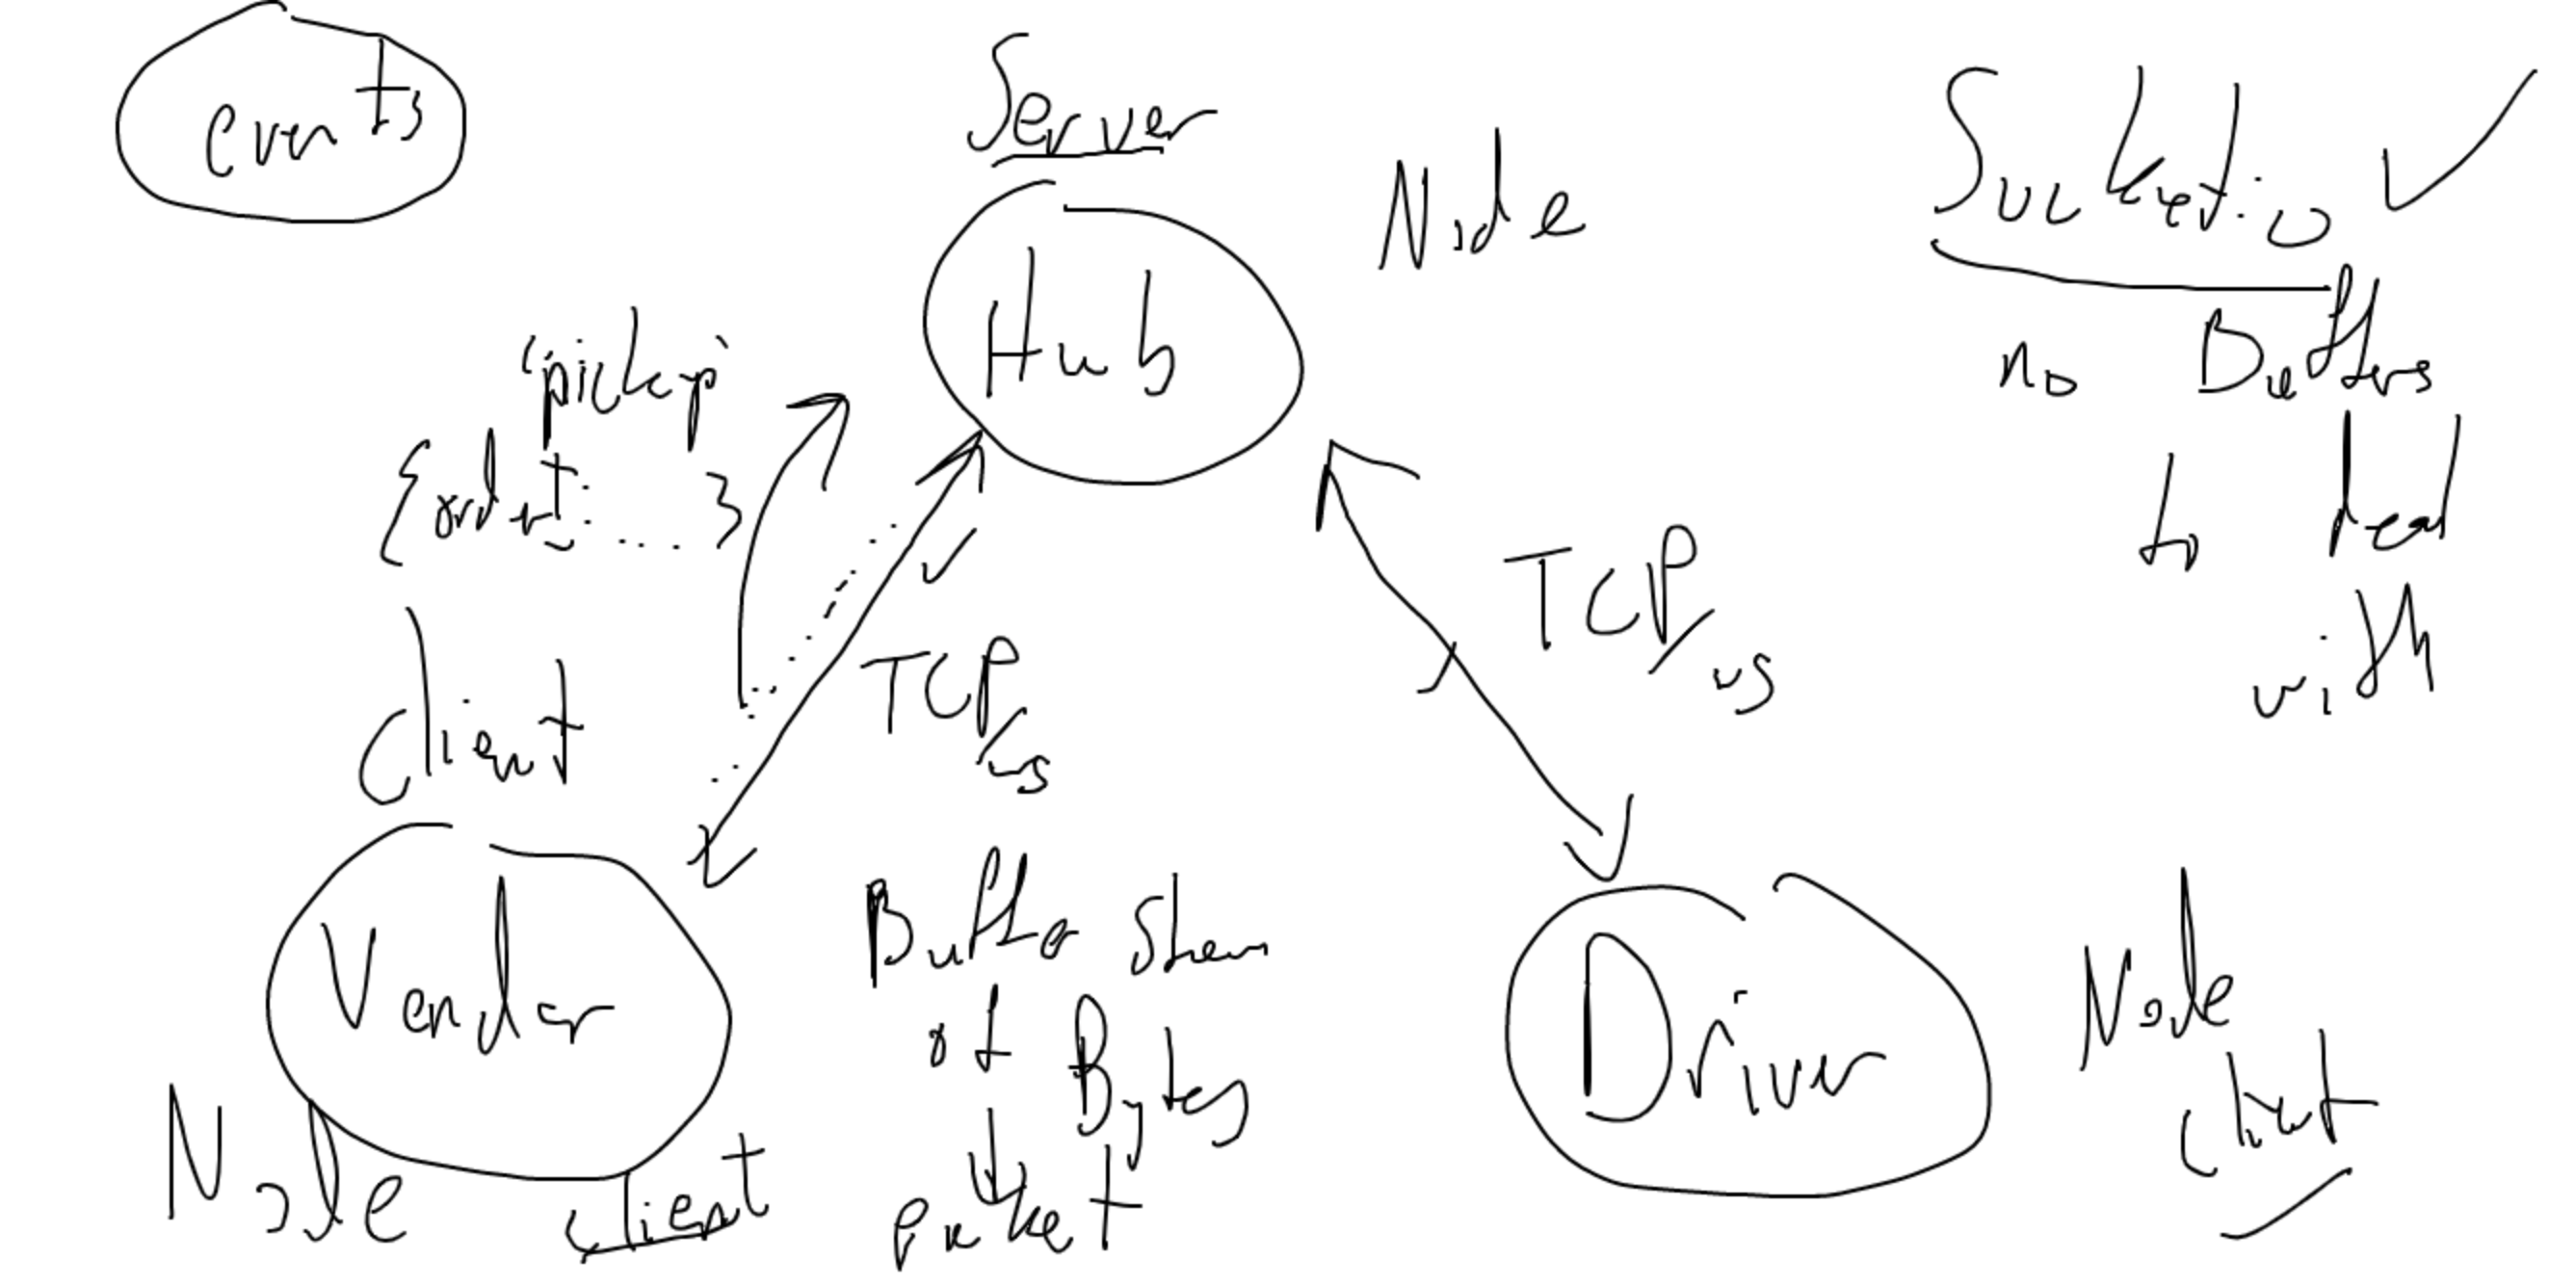 events
Server
Hub
Node
Socket.io
no Buffers
to deal
with
'pickup'
{order: ... }
client
TCP/ws
TCP/ws
Vendor
Node client
Buffer Stream
of Bytes
packet
Driver
Node
client